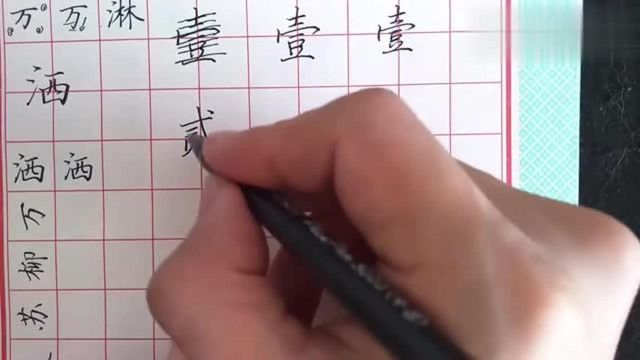 万 万 淋 壹 壹 壹
洒 贰
洒 洒
万
柳
苏